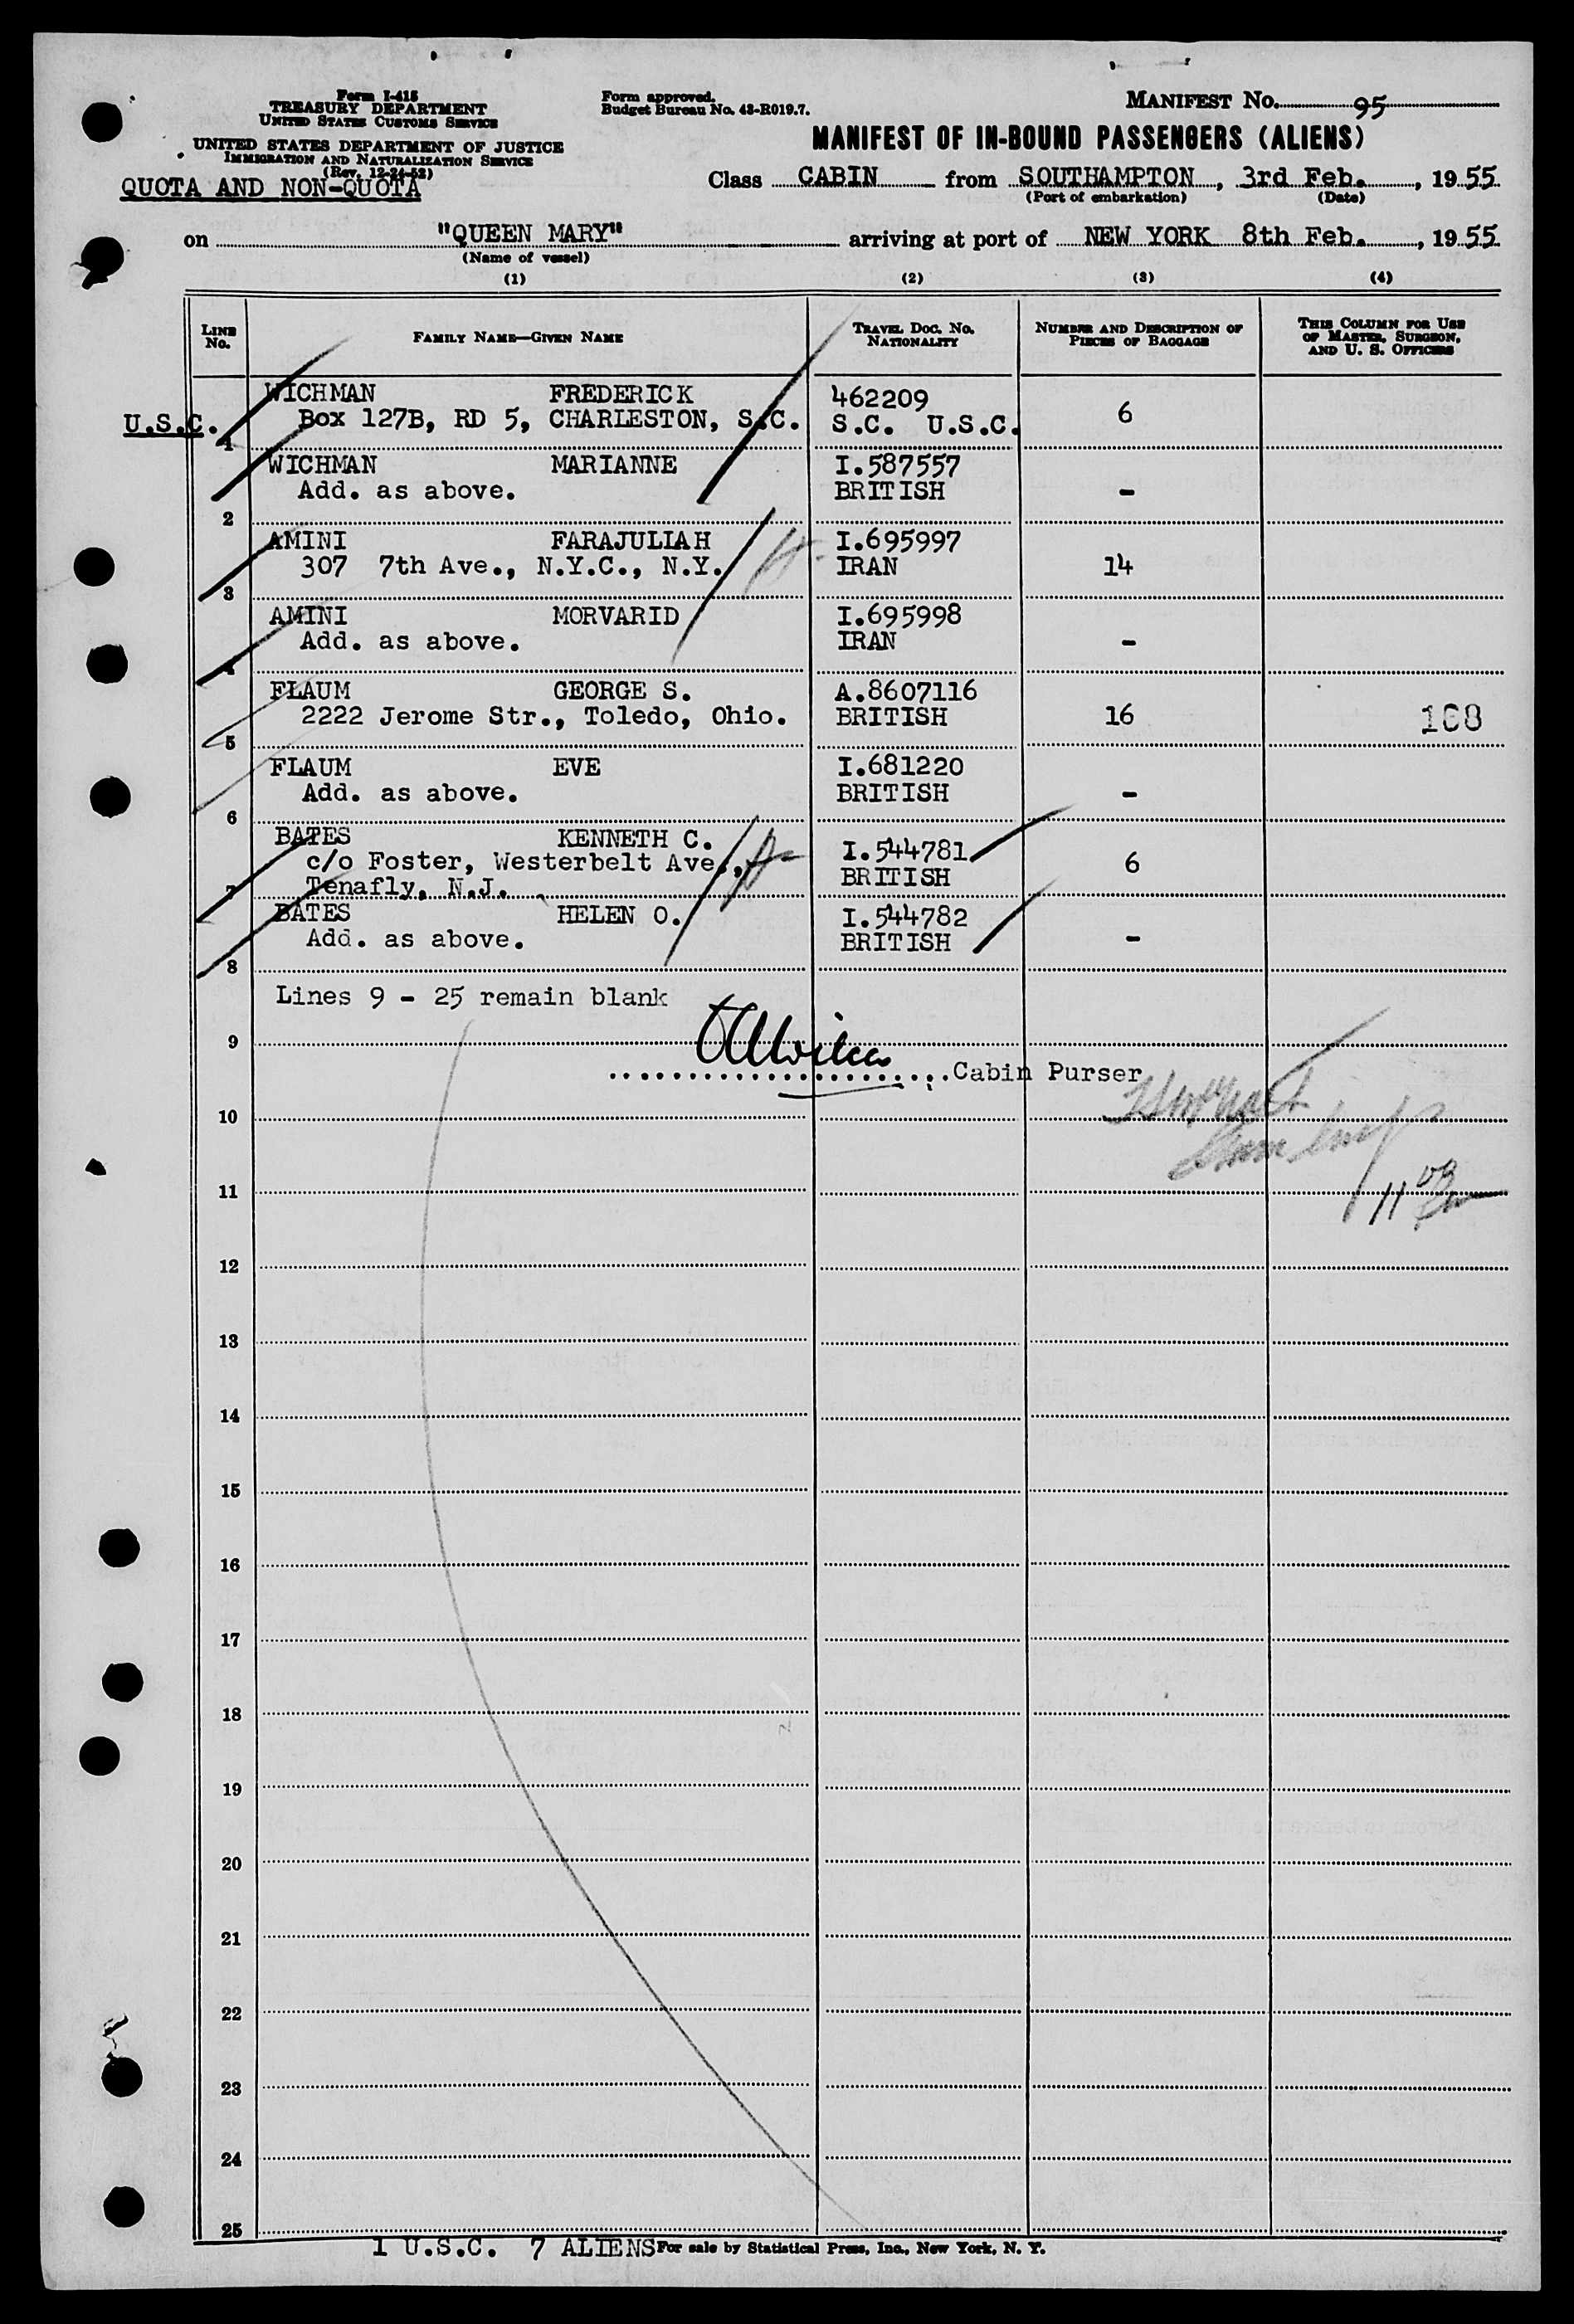 Form I-415
TREASURY DEPARTMENT
UNITED STATES CUSTOMS SERVICE
UNITED STATES DEPARTMENT OF JUSTICE
IMMIGRATION AND NATURALIZATION SERVICE
(Rev. 12-24-52)
QUOTA AND NON-QUOTA
Form approved.
Budget Bureau No. 43-R019.7.
MANIFEST No. 95
MANIFEST OF IN-BOUND PASSENGERS (ALIENS)
Class CABIN from SOUTHAMPTON, 3rd Feb., 1955
(Port of embarkation) (Date)
on "QUEEN MARY" arriving at port of NEW YORK 8th Feb., 1955
(Name of vessel)
(1) (2) (3) (4)
LINE No. FAMILY NAME—GIVEN NAME TRAVEL DOC. No. NATIONALITY NUMBER AND DESCRIPTION OF PIECES OF BAGGAGE THIS COLUMN FOR USE OF MASTER, SURGEON, AND U. S. OFFICERS
WICHMAN FREDERICK 462209
U.S.C. 1 Box 127B, RD 5, CHARLESTON, S.C. S.C. U.S.C. 6
WICHMAN MARIANNE I.587557
2 Add. as above. BRITISH -
AMINI FARAJULIAH I.695997
3 307 7th Ave., N.Y.C., N.Y. IRAN 14
AMINI MORVARID I.695998
4 Add. as above. IRAN -
FLAUM GEORGE S. A.8607116
5 2222 Jerome Str., Toledo, Ohio. BRITISH 16 168
FLAUM EVE I.681220
6 Add. as above. BRITISH -
BATES KENNETH C. I.544781
c/o Foster, Westerbelt Ave., BRITISH 6
7 Tenafly, N.J.
BATES HELEN O. I.544782
8 Add. as above. BRITISH -
Lines 9 - 25 remain blank
9
Cabin Purser
10
11
12
13
14
15
16
17
18
19
20
21
22
23
24
25
1 U.S.C. 7 ALIENS For sale by Statistical Press, Inc., New York, N. Y.